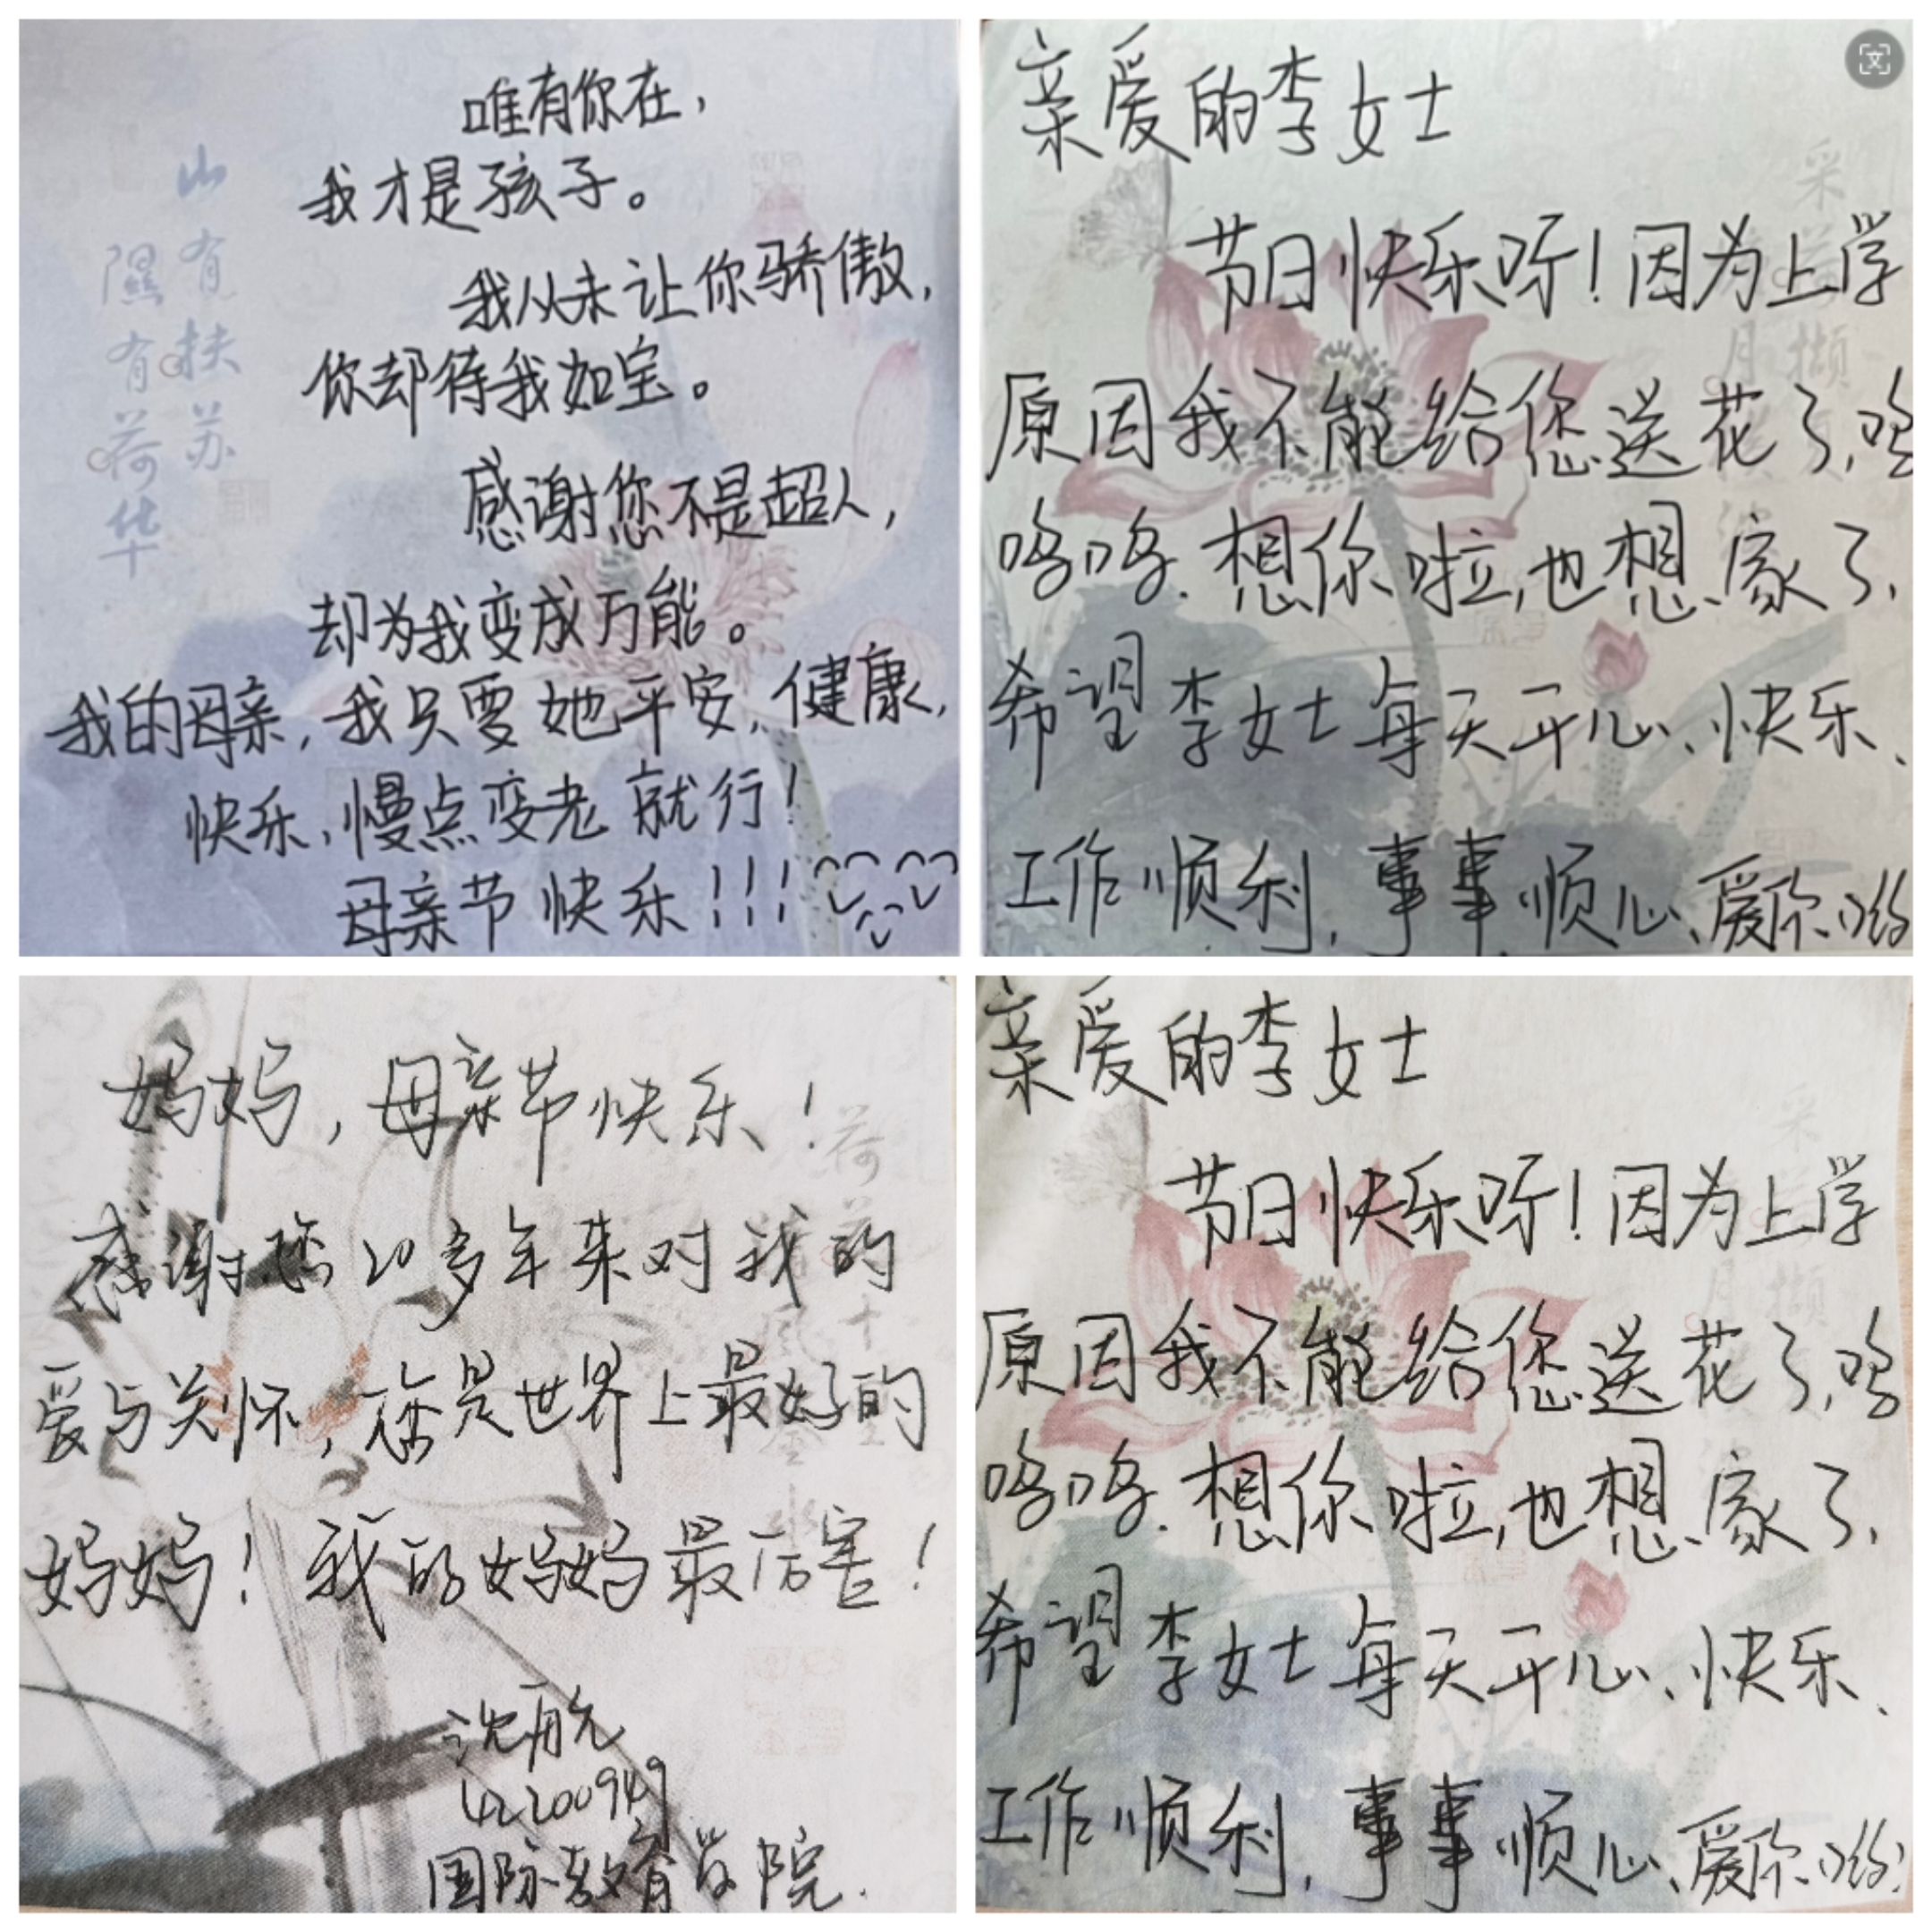 唯有你在，
我才是孩子。
我从未让你骄傲，
你却待我如宝。
感谢您不是超人，
却为我变成万能。
我的母亲，我只要她平安，健康，
快乐，慢点变老就行！
母亲节快乐！！！
山有扶苏
隰有荷华
亲爱的李女士
节日快乐呀！因为上学
原因我不能给您送花了，呜
呜呜．想你啦，也想家了，
希望李女士每天开心、快乐、
工作顺利，事事顺心、爱你、哟
采撷
月
妈妈，母亲节快乐！
感谢您20多年来对我的
爱与关怀，您是世界上最好的
妈妈！我的妈妈最厉害！
42200949
国际教育学院．
荷
风
十
亲爱的李女士
节日快乐呀！因为上学
原因我不能给您送花了，呜
呜呜．想你啦，也想家了，
希望李女士每天开心、快乐、
工作顺利，事事顺心、爱你、哟
采撷
月